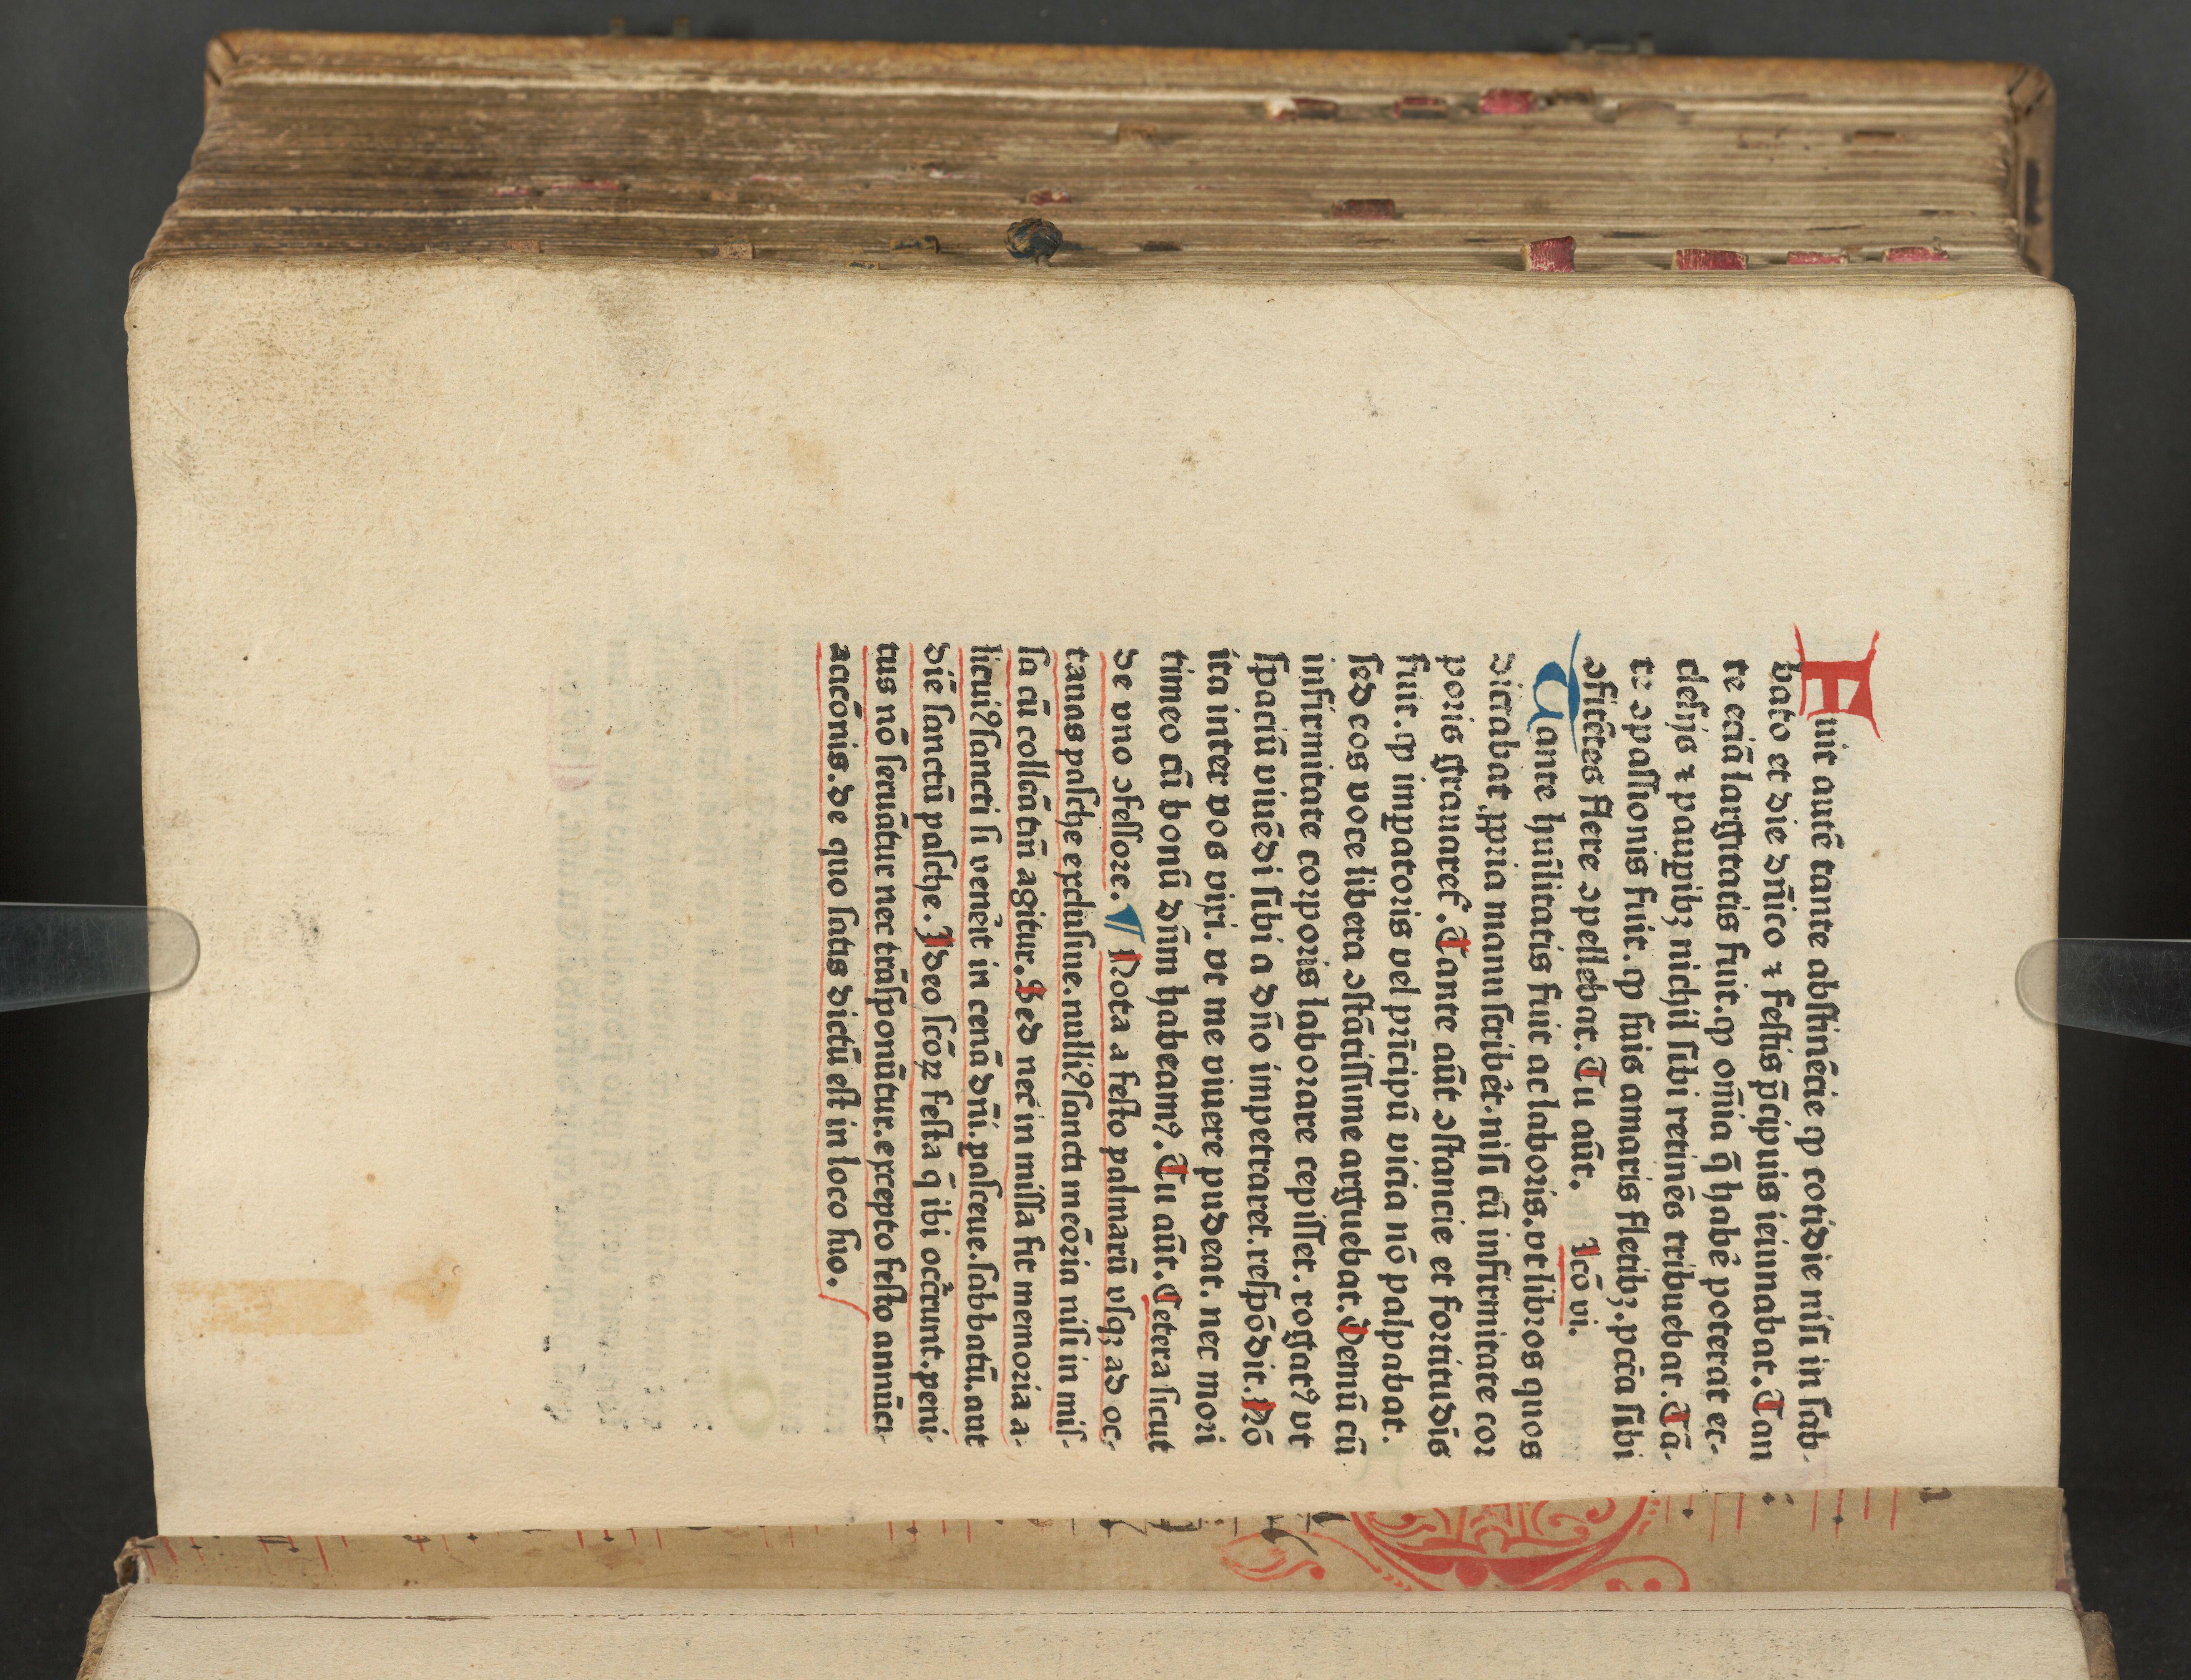 Fuit autē tante abſtinēcie ꝙ cotidie niſi in ſab-
bato et die dn̄ico ⁊ feſtis p̄cipuis ieiunabat. Tan
te eciā largitatis fuit. ꝙ om̄ia q̄ habē poterat ec-
cleſijs ⁊ paupibꝫ nichil ſibi retinēs tribuebat. Tā-
te ↄpaſſionis fuit. ꝙ ſuis amaris fletibꝫ. pctā ſibi
ↄfitētes flere ↄpellebat. Tu aūt. Lcō vi.
Tante hūilitatis fuit ac laboris. vt libros quos
dictabat ꝓpria manu ſcribēt. niſi cū infirmitate cor
poris grauareť. Tante aūt ↄſtancie et fortitudīs
fuit. ꝙ imꝑatoris vel pͥncipū vicia nō palpabat.
ſed eos voce libera ↄſtātiſſime arguebat. Demū cū
infirmitate corporis laborare cepiſſet. rogatꝰ vt
ſpaciū viuēdi ſibi a dn̄o impetraret. reſpōdit. Nō
ita inter vos vixi. vt me viuere pudeat. nec mori
timeo cū bonū dn̄m habeamꝰ. Tu aūt. Cetera ſicut
de vno ↄfeſſore. ¶ Nota a feſto palmarū vſqꝫ ad oc-
tauas paſche excluſiue. nulliꝰ ſancti meōria niſi in miſ-
ſa cū collcā tm̄ agitur. Sed nec in miſſa fit memoria a-
licuiꝰ ſancti ſi venēit in cenā dn̄i. paſceue. ſabbatū. aut
diē ſanctū paſche. Ideo ſcōꝝ feſta q̄ ibi occ̄runt. peni-
tus nō ſeruātur nec trāſponūtur. excepto feſto annūci-
acōnis. de quo ſatis dictū eſt in loco ſuo.